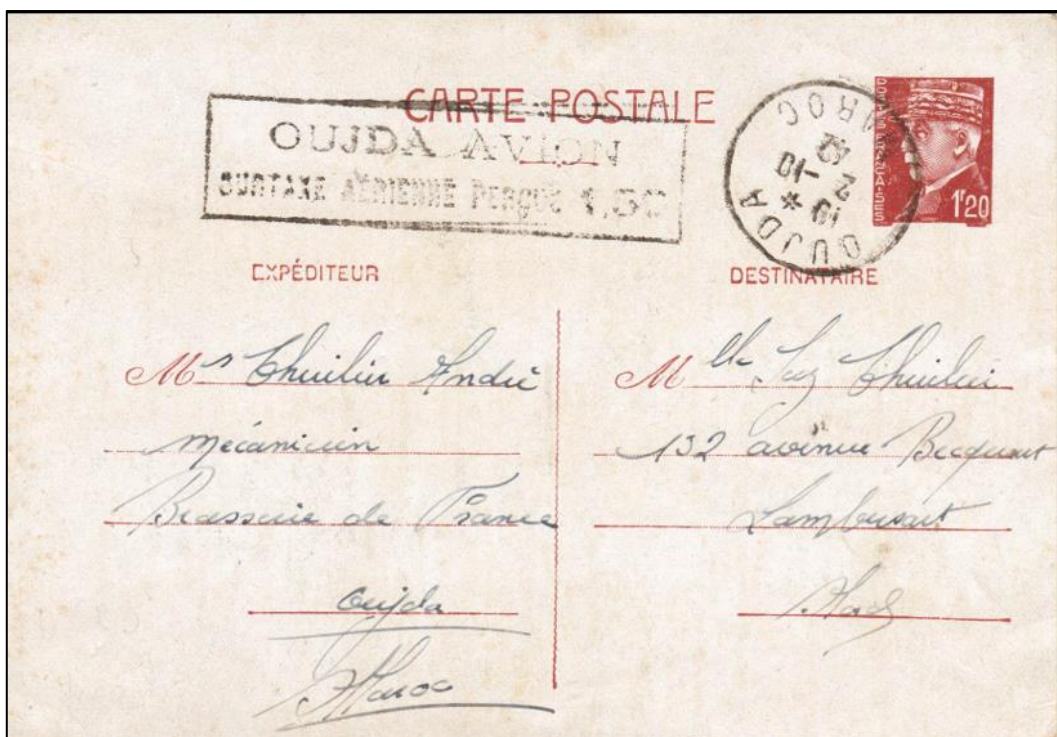 CARTE POSTALE
OUJDA AVION
SURTAXE AÉRIENNE PERÇUE 1,50
OUJDA MAROC
10 * -10
2
42
POSTES FRANÇAISES
1F20
EXPÉDITEUR
DESTINATAIRE
Mr Thuilier André
mécanicien
Brasserie de France
Oujda
Maroc
Mlle Thuilier
132 avenue Becquart
Lambersart
Nord